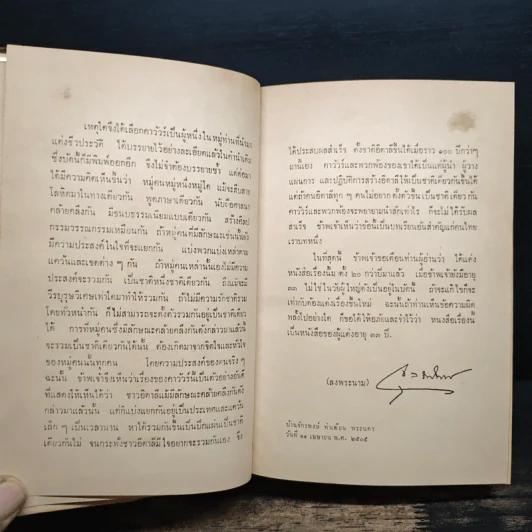 เหตุใดจึงได้เลือกคาวัวร์เป็นผู้หนึ่งในหมู่ท่านที่นำมา
แต่งชีวประวัติ ได้บรรยายไว้อย่างละเอียดแล้วในคำนำเดิม
ซึ่งบัดนี้ก็มีพิมพ์ออกอีก จึงไม่จำต้องบรรยายซ้ำ แต่ต่อมา
ได้มีความคิดเห็นขึ้นว่า หมู่คนหมู่หนึ่งหมู่ใด แม้จะสืบสาย
โลหิตมาในทางเดียวกัน พูดภาษาเดียวกัน นับถือศาสนา
คล้ายคลึงกัน มีขนบธรรมเนียมแบบเดียวกัน สร้างศิลป
กรรมวรรณกรรมเหมือนกัน ถ้าหมู่คนที่มีลักษณะเช่นนั้นยัง
มีความประสงค์ในใจที่จะแยกกัน แบ่งพวกแบ่งเหล่าตาม
แคว้นและเขตต่าง ๆ กัน ถ้าหมู่คนเหล่านั้นเองไม่มีความ
ประสงค์จะรวมกัน เป็นชาติหนึ่งชาติเดียวกัน ถึงแม้จะมี
วีรบุรุษวิเศษเท่าใดมาทำให้รวมกัน ถ้าไม่มีความรักชาติร่วม
โดยทั่วหน้ากัน ก็ไม่สามารถจะตั้งตัวรวมกันอยู่เป็นชาติเดียว
ได้ การที่หมู่คนซึ่งมีลักษณะคล้ายคลึงกันดังกล่าวมาแล้วนี้
จะรวมเป็นชาติเดียวกันได้นั้น ต้องเกิดมาจากจิตใจและหัวใจ
ของหมู่คนนั้นทุกคน โดยความประสงค์ของตนจริง ๆ
ฉะนั้น ข้าพเจ้าจึงเห็นว่าเรื่องของคาวัวร์นี้เป็นตัวอย่างอันดี
ที่แสดงให้เห็นได้ว่า ชาวอิตาลีแม้มีลักษณะคล้ายคลึงกันดัง
กล่าวมาแล้วนั้น แต่ก็แบ่งแยกกันอยู่เป็นประเทศและแคว้น
เล็ก ๆ เป็นเวลานาน หาได้รวมกันขึ้นเป็นปึกแผ่นเป็นชาติ
เดียวกันไม่ จนกระทั่งชาวอิตาลีมีใจอยากจะรวมกันเอง จึง
ได้ประสบผลสำเร็จ ตั้งชาติอิตาลีขึ้นได้เมื่อราว ๑๐๐ ปีกว่าๆ
มานี้เอง คาวัวร์และพวกพ้องของเขาได้เป็นแต่ผู้นำ ผู้วาง
แผนการ และปฏิบัติการสร้างอิตาลีให้เป็นชาติเดียวกันขึ้นได้
แต่ถ้าคนอิตาลีทุก ๆ คนไม่อยากตั้งตัวขึ้นเป็นชาติเดียวกัน
คาวัวร์และพวกพ้องจะพยายามนำสักเท่าไร ก็จะไม่ได้รับผล
สำเร็จ ข้าพเจ้าเห็นว่าข้อนี้เป็นบทเรียนอันสำคัญแก่คนไทย
เราบทหนึ่ง
ในที่สุดนี้ ข้าพเจ้าขอเตือนท่านผู้อ่านว่า ได้แต่ง
หนังสือเรื่องนี้มาตั้ง ๒๐ กว่าปีมาแล้ว เมื่อข้าพเจ้ายังมีอายุ
๓๓ ไม่ใช่ในวัยผู้ใหญ่ดังเป็นอยู่ในบัดนี้ ถ้าจะแก้ไขก็จะ
เท่ากับต้องแต่งเรื่องขึ้นใหม่ ฉะนั้นถ้าท่านเห็นข้อความผิด
พลั้งไปอย่างใด ก็ขอได้ให้อภัยและจำไว้ว่า หนังสือเรื่องนี้
เป็นหนังสือของผู้แต่งอายุ ๓๓ ปี.
(ลงพระนาม)
บ้านจักรพงษ์ ท่าเตียน พระนคร
วันที่ ๑๑ เมษายน พ.ศ. ๒๕๐๕